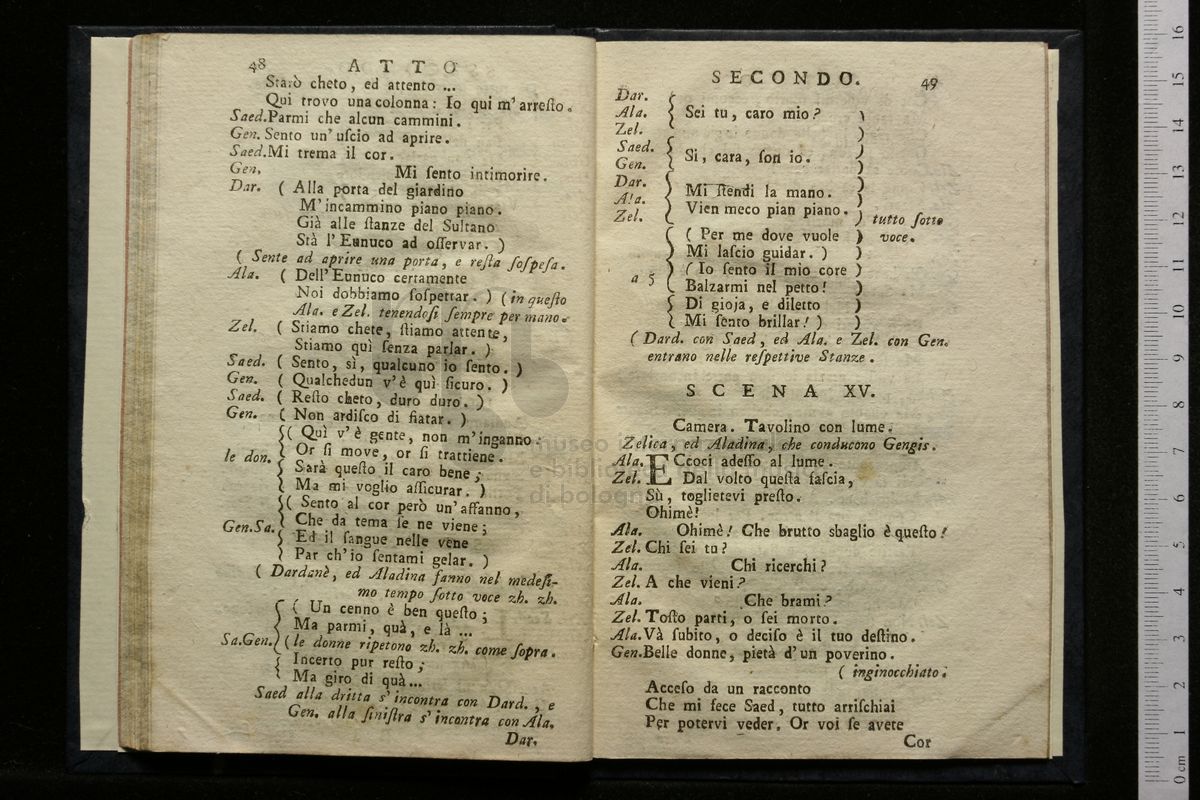 48 ATTO
Starò cheto, ed attento ...
Qui trovo una colonna: Io qui m'arreſto.
Saed. Parmi che alcun cammini.
Gen. Sento un'uſcio ad aprire.
Saed. Mi trema il cor.
Gen. Mi ſento intimorire.
Dar. ( Alla porta del giardino
M'incammino piano piano.
Già alle ſtanze del Sultano
Stà l'Eunuco ad oſſervar. )
( Sente ad aprire una porta, e reſta ſoſpeſa.
Ala. ( Dell'Eunuco certamente
Noi dobbiamo ſoſpettar. ) ( in queſto
Ala. e Zel. tenendoſi ſempre per mano.
Zel. ( Stiamo chete, ſtiamo attente,
Stiamo quì ſenza parlar. )
Saed. ( Sento, sì, qualcuno io ſento. )
Gen. ( Qualchedun v'è quì ſicuro. )
Saed. ( Reſto cheto, duro duro. )
Gen. ( Non ardiſco di fiatar. )
( Quì v'è gente, non m'inganno:
le don. Or ſi move, or ſi trattiene.
Sarà queſto il caro bene;
Ma mi voglio aſſicurar. )
( Sento al cor però un'affanno,
Gen. Sa. Che da tema ſe ne viene;
Ed il ſangue nelle vene
Par ch'io ſentami gelar. )
( Dardanè, ed Aladina fanno nel medeſi-
mo tempo ſotto voce zh. zh.
( Un cenno è ben queſto;
Ma parmi, quà, e là ...
Sa. Gen. (le donne ripetono zh. zh. come ſopra.
Incerto pur reſto;
Ma giro di quà...
Saed alla dritta s'incontra con Dard., e
Gen. alla ſiniſtra s'incontra con Ala.
Dar.
SECONDO. 49
Dar.
Ala. Sei tu, caro mio?
Zel.
Saed. Si, cara, ſon io.
Gen.
Dar. Mi ſtendi la mano.
Ala. Vien meco pian piano.
Zel. tutto ſotto
( Per me dove vuole voce.
Mi laſcio guidar. )
( Io ſento il mio core
a 5 Balzarmi nel petto!
Di gioja, e diletto
Mi ſento brillar! )
( Dard. con Saed, ed Ala. e Zel. con Gen.
entrano nelle reſpettive Stanze.
SCENA XV.
Camera. Tavolino con lume.
Zelica, ed Aladina, che conducono Gengis.
Ala. ECcoci adeſſo al lume.
Zel. Dal volto queſta faſcia,
Sù, toglietevi preſto.
Ohimè!
Ala. Ohimè! Che brutto sbaglio è queſto!
Zel. Chi ſei tu?
Ala. Chi ricerchi?
Zel. A che vieni?
Ala. Che brami?
Zel. Toſto parti, o ſei morto.
Ala. Và ſubito, o deciſo è il tuo deſtino.
Gen. Belle donne, pietà d'un poverino.
( inginocchiato.
Acceſo da un racconto
Che mi fece Saed, tutto arriſchiai
Per potervi veder. Or voi ſe avete
Cor